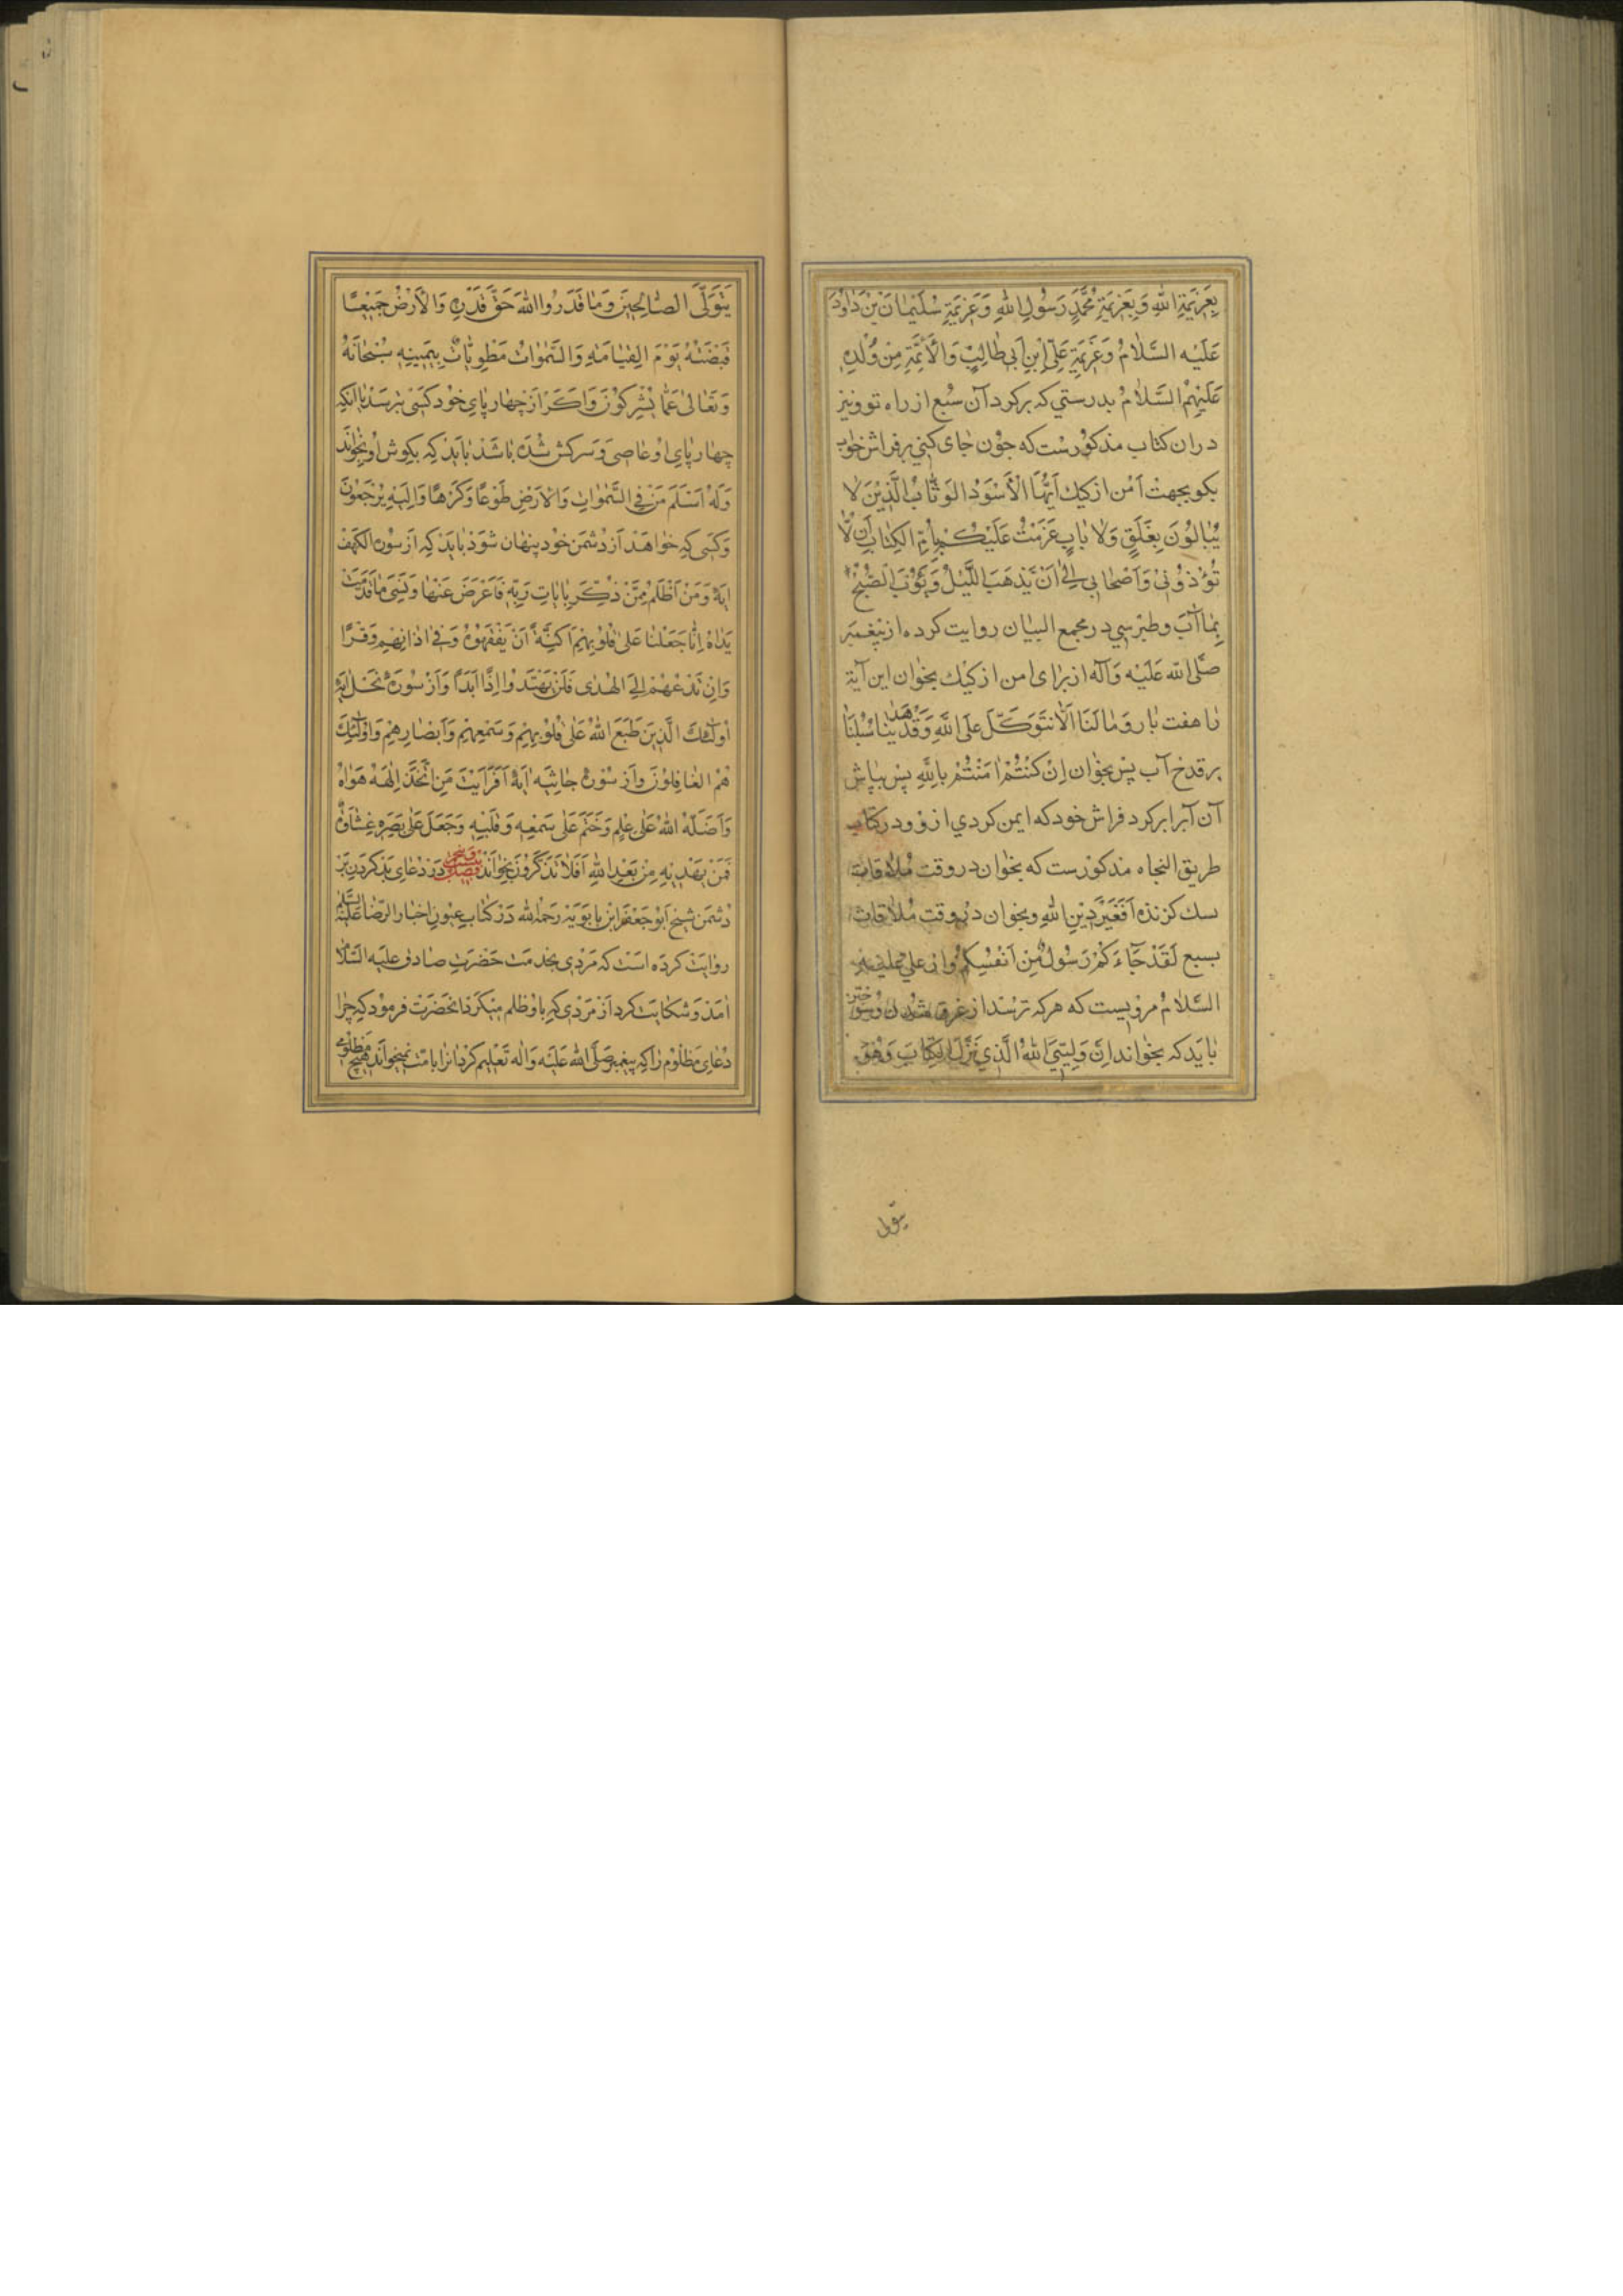 بِعَزِيمَةِ اللهِ وَبِعَزِيمَةِ مُحَمَّدٍ رَسُولِ اللهِ وَعَزِيمَةِ سُلَيْمَانَ بْنَ دَاوُدَ
عَلَيْهِ السَّلَامُ وَعَزِيمَةِ عَلِيِّ ابْنِ أَبِي طَالِبٍ وَالْأَئِمَّةِ مِنْ وُلْدِهِ
عَلَيْهِمُ السَّلَامُ بدرستي كه بركردد آن سَبُع از راه تو ونيز
دران كتاب مذكورست كه چون جاى كني بر فراش خواب
بكو بجهت اَمْن از كيك اَيُّهَا الْاَسْوَدُ الوَثَّابُ الَّذِيْنَ لَا
يُبَالُوْنَ بِغَلَقٍ وَلَا بَابٍ عَزَمْتُ عَلَيْكُمْ بِأُمِّ الكِتَابِ اَنْ لَّا
تُوْذُوْنِيْ وَاَصْحَابِي اِلَى اَنْ يَذْهَبَ اللَّيْلُ وَيَؤُبَ الصُّبْحُ
بِمَا آبَ وطبرسي در مجمع البيان روايت كرده از پيغمبر
صَلَّى اللهُ عَلَيْهِ وَآلِه از براى امن از كيك بخوان اين آية
را هفت بار وَمَا لَنَا اَلَّا نَتَوَكَّلَ عَلَى اللَّهِ وَقَدْ هَدَيٰنَا سُبُلَنَا
بر قدح آب پس بخوان اِنْ كُنْتُمْ اٰمَنْتُمْ بِاللهِ پس بپاش
آن آبرا بركرد فراش خود كه ايمن كردي ازو ودر كتاب
طريق النجاه مذكورست كه بخوان در وقت ملاقات
سك كزنده اَفَغَيْرَ دِيْنِ اللهِ وبخوان در وقت ملاقات
بسبع لَقَدْ جَاءَكُمْ رَسُولٌ مِنْ اَنْفُسِكُمْ واز علي عليه
السَّلَامُ مرويست كه هركه ترسد از غرق شدن وسوختن
بايَد كه بخواند اِنَّ وَلِيِّيَ اللهُ الَّذِي نَزَّلَ الكِتَابَ وَهُوَ
يتول
يَتَوَلَّى الصَّالِحِيْنَ وَمَا قَدَرُوا اللهَ حَقَّ قَدْرِهِ وَالْاَرْضُ جَمِيْعًا
قَبْضَتُهُ يَوْمَ القِيَامَةِ وَالسَّمٰوَاتُ مَطْوِيَّاتٌ بِيَمِيْنِهِ سُبْحَانَهُ
وَتَعَالٰى عَمَّا يُشْرِكُوْنَ وَاكَر از چهارپاي خود كسى بترسد يا آنكه
چهارپاي او عاصى وَسركش شده باشد بايد كه بكوش او بخواند
وَلَهُ اَسْلَمَ مَنْ فِي السَّمٰوَاتِ وَالْاَرْضِ طَوْعًا وَكَرْهًا وَاِلَيْهِ يُرْجَعُوْنَ
وكسى كه خواهد از دشمن خود پنهان شود بايد كه از سوره الكهف
ايه وَمَنْ اَظْلَمُ مِمَّنْ ذُكِّرَ بِاٰيَاتِ رَبِّهِ فَاَعْرَضَ عَنْهَا وَنَسِيَ مَا قَدَّمَتْ
يَدَاهُ اِنَّا جَعَلْنَا عَلٰى قُلُوْبِهِمْ اَكِنَّةً اَنْ يَفْقَهُوْهُ وَفِي اٰذَانِهِمْ وَقْرًا
وَاِنْ تَدْعُهُمْ اِلَى الهُدٰى فَلَنْ يَهْتَدُوا اِذًا اَبَدًا وَاز سُوره نحل ايه
اُولٰئِكَ الَّذِيْنَ طَبَعَ اللهُ عَلٰى قُلُوْبِهِمْ وَسَمْعِهِمْ وَاَبْصَارِهِمْ وَاُولٰئِكَ
هُمُ الغَافِلُوْنَ واز سُورهٔ جاثيه ايه اَفَرَاَيْتَ مَنِ اتَّخَذَ اِلٰهَهُ هَوَاهُ
وَاَضَلَّهُ اللهُ عَلٰى عِلْمٍ وَخَتَمَ عَلٰى سَمْعِهِ وَقَلْبِهِ وَجَعَلَ عَلٰى بَصَرِهِ غِشَاوَةً
فَمَنْ يَهْدِيْهِ مِنْ بَعْدِ اللهِ اَفَلَا تَذَكَّرُوْنَ بخواند فصل در دعاى بد كردن بر
دشمن شيخ ابوجعفر ابن بابويه رحمه الله در كتاب عيون اخبار الرضا عليه السلام
روايت كرده است كه مردى بخدمت حضرت صادق عليه السلام
امد وشكايت كرد از مردى كه باو ظلم ميكرد انحضرت فرمود كه چرا
دعاى مظلوم را كه پيغمبر صَلَّى اللهُ عَلَيْهِ وَاٰلِه تعليم كرد انرا بامت نميخواند هيچ مظلومى